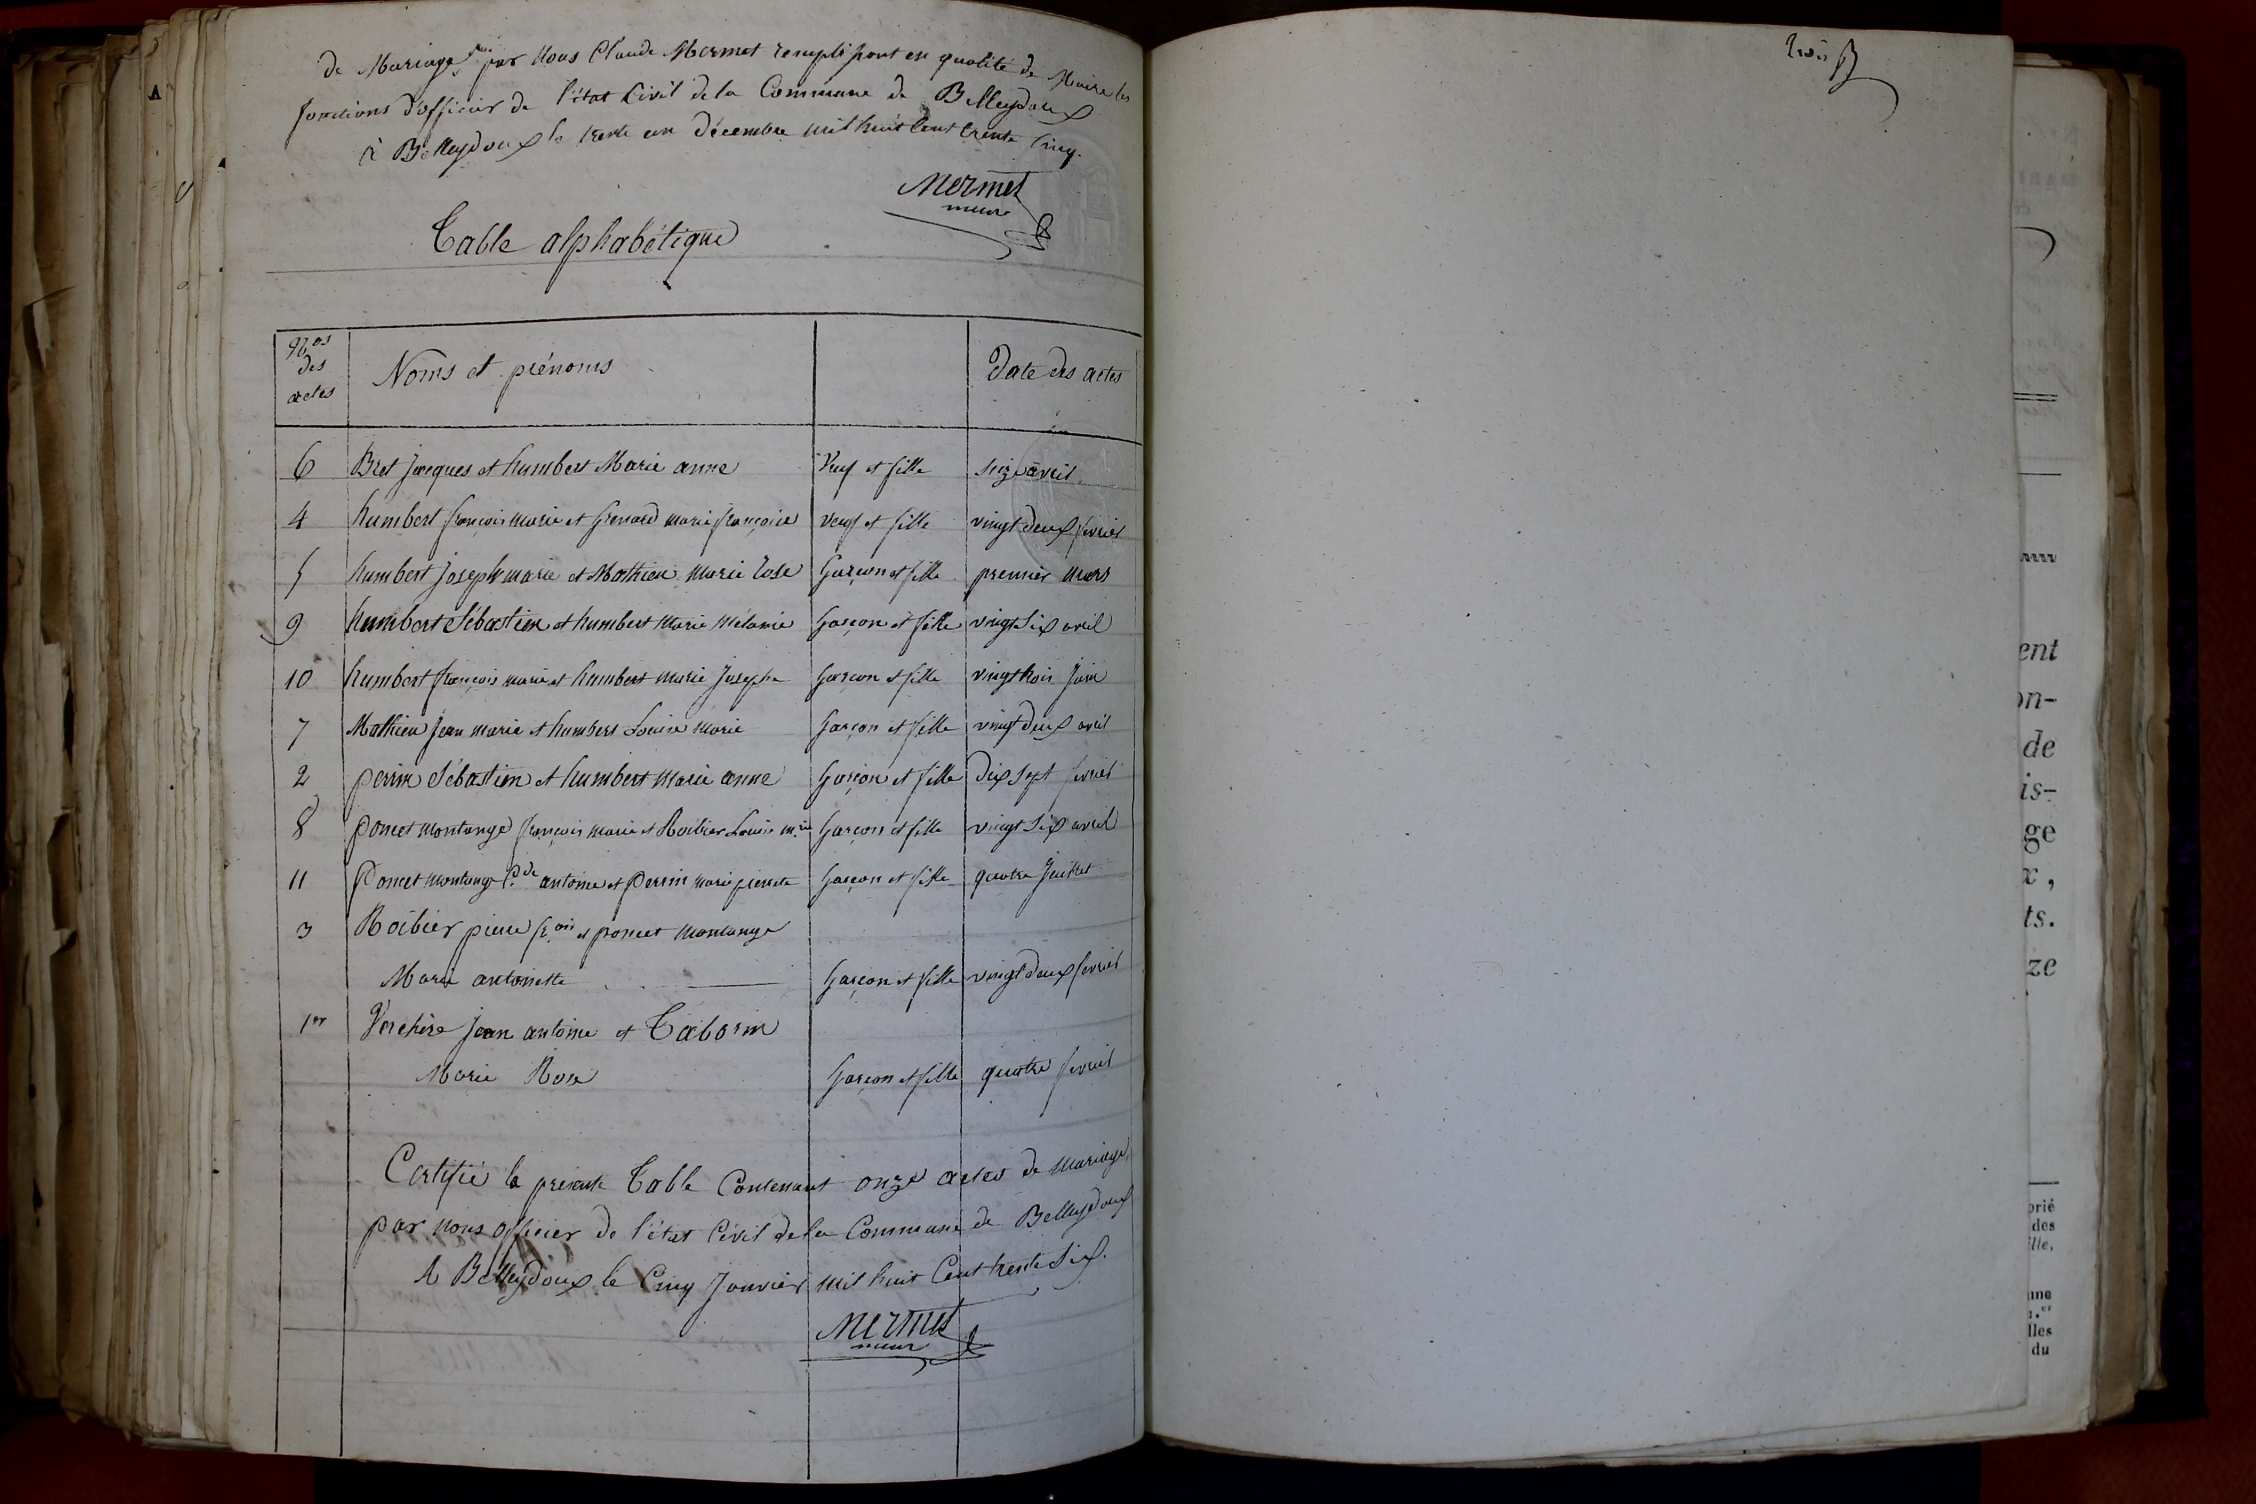 de Mariage par Nous Claude Mermet remplissant en qualité de Maire les
fonctions d'officier de l'état Civil de la Commune de Belleydoux
à Belleydoux le trente un décembre mil huit Cent trente Cinq.
Mermet
maire
Table alphabétique
Nos des actes
Noms et prénoms
Date des actes
6 Bret Jacques et humbert Marie anne Veuf et fille seize avril
4 humbert françois marie et Grenard marie françoise Veuf et fille vingt deux fevrier
5 humbert Joseph marie et Mathieu Marie rose Garçon et fille premier Mars
9 humbert Sébastien et humbert Marie Mélanie Garçon et fille vingt Six avril
10 humbert françois marie et humbert Marie Josephe Garçon et fille vingt trois Juin
7 Mathieu Jean Marie et humbert Louise Marie Garçon et fille vingt deux avril
2 perrin Sébastien et humbert Marie anne Garçon et fille dix sept fevrier
8 poncet montange françois marie et Roibier Louise m.rie Garçon et fille vingt Six avril
11 Poncet montange antoine et Perrin Marie pierrette Garçon et fille quatre Juillet
3 Roibier pierre fr.ois et poncet Montange
Marie antoinette Garçon et fille vingt deux fevrier
1er Verchère Jean antoine et Taborin
Marie Rose Garçon et fille quatre fevrier
Certifié la présente Table Contenant onze actes de Mariage
par nous officier de l'état Civil de la Commune de Belleydoux
A Belleydoux le Cinq Janvier mil huit Cent trente Six.
Mermet
maire
trois
ent
on-
de
is-
ge
x,
ts.
ze
prié
des
ille,
une
lles
du